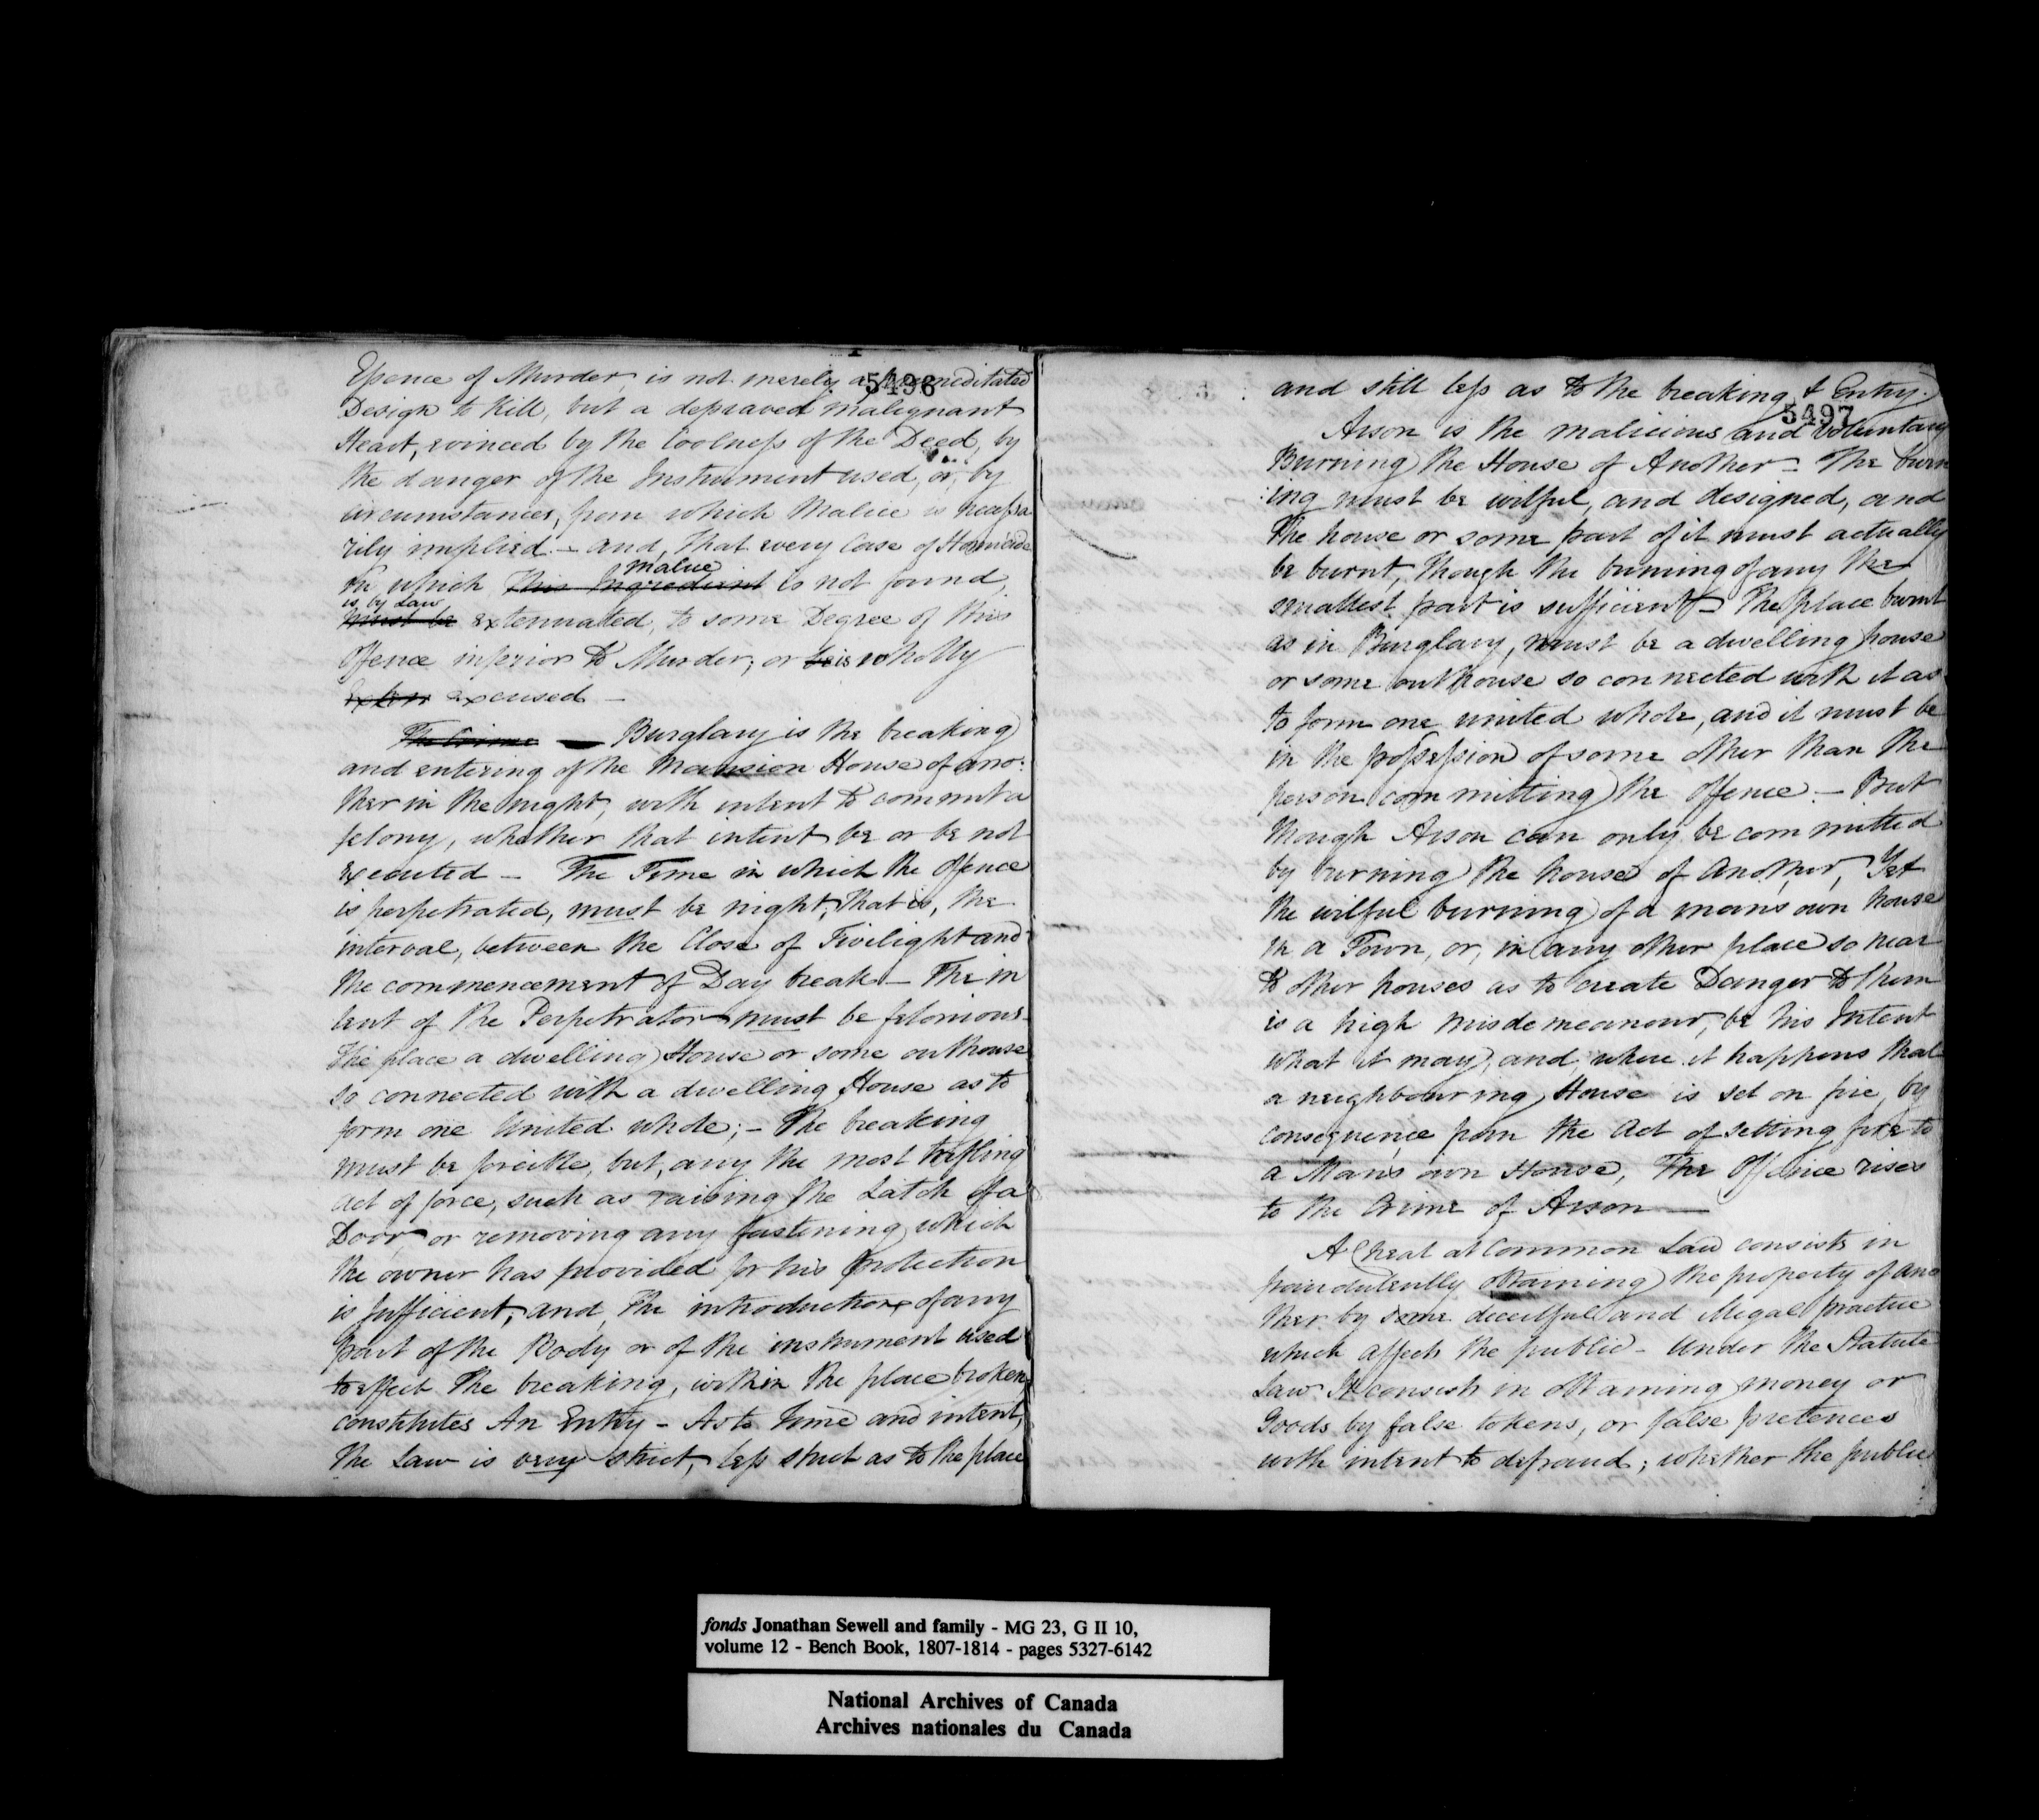 5496
Essence of Murder, is not merely a premeditated
Design to Kill, but a depraved malignant
Heart, evinced by the Coolness of the Deed, by
the danger of the Instrument used, or, by
circumstances, from which Malice is necessa
rily implied. - and, that every Case of Homicide
in which This Ingredient malice is not found,
must be is by Law extenuated, to some Degree of this
Offence inferior to Murder; or is wholly
excused -
The Crime - Burglary is the breaking
and entering of the Mansion House of ano:
ther in the night, with intent to commit a
felony, whether that intent be or be not
executed - The Time in which the Offence
is perpetrated, must be night, that is, the
interval, between the Close of Twilight and
the commencement of Day break - The in
tent of the Perpetrator must be felonious -
The place a dwelling House or some outhouse
so connected with a dwelling House as to
form one United whole; - The breaking
must be forcible, but, any the most trifling
act of force, such as raising the Latch of a
Door or removing any fastening which
the owner has provided for his protection
is sufficient, and, the introduction of any
part of the Body or of the instrument used
to effect the breaking, within the place broken,
constitutes An Entry - As to Time and intent,
the Law is very strict, less strict as to the place
5497
and still less as to the breaking & Entry.
Arson is the malicious and voluntary
Burning the House of Another - The burn
:ing must be wilful, and designed, and
the house or some part of it must actually
be burnt, though the burning of any the
smallest part is sufficient - The place burnt
as in Burglary, must be a dwelling house
or some outhouse so connected with it as
to form one united whole, and it must be
in the possession of some other than the
person committing the Offence - But
though Arson can only be committed
by burning the house of another, Yet
the wilful burning of a mans own house
in a Town, or, in any other place so near
to other houses as to create Danger to them
is a high misdemeanour, be his Intent
what it may, and, where it happens that
a neighbouring House is set on fire, by
consequence from the Act of setting fire to
a Man's own House, The Offence rises
to the Crime of Arson -
A Cheat at Common Law consists in
fraudulently obtaining the property of ano
ther by some deceitful and illegal practice
which affects the public - Under the Statute
Law It consists in obtaining money or
Goods by false tokens, or false pretences
with intent to defraud; whether the public
fonds Jonathan Sewell and family - MG 23, G II 10,
volume 12 - Bench Book, 1807-1814 - pages 5327-6142
National Archives of Canada
Archives nationales du Canada